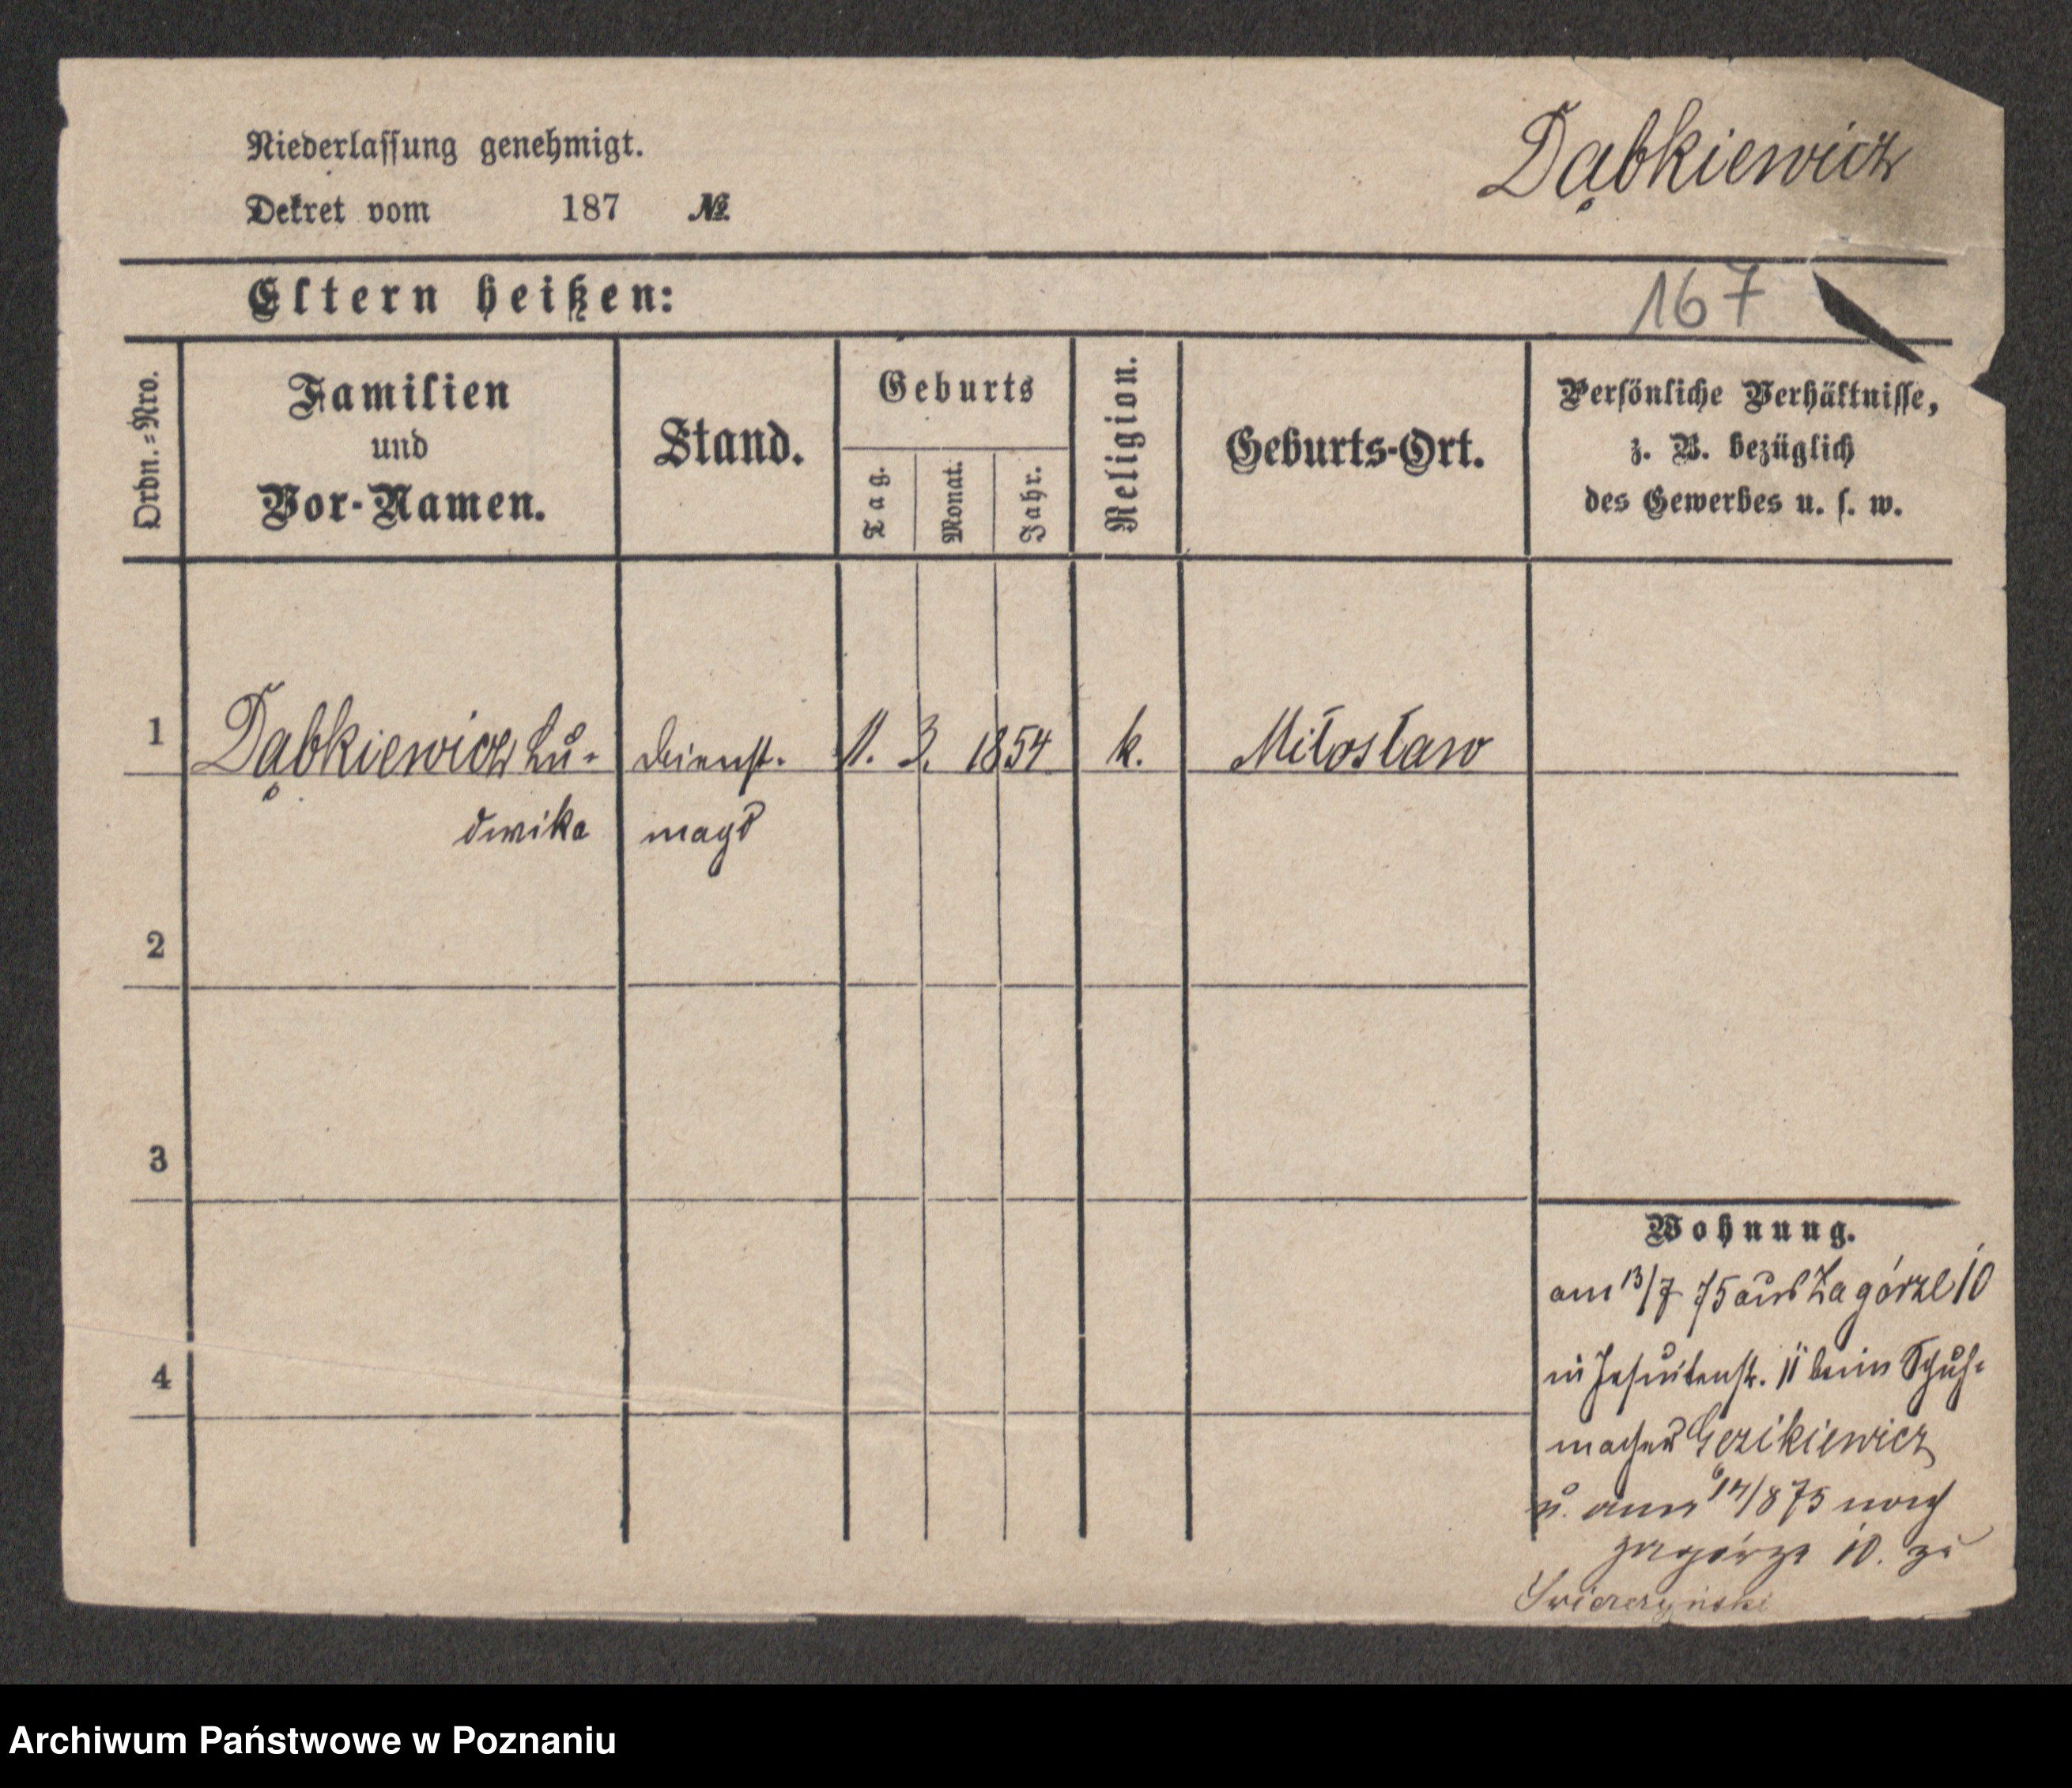 Niederlassung genehmigt.
Dekret vom 187 №
Dąbkiewicz
Eltern heißen:
167
Ordn.=Nro.
Familien
und
Vor-Namen.
Stand.
Geburts
Tag.
Monat.
Jahr.
Religion.
Geburts-Ort.
Persönliche Verhältnisse,
z. B. bezüglich
des Gewerbes u. s. w.
1 Dąbkiewicz Lu- Dienst- 11. 3. 1854 k. Miłosław
dwika magd
2
3
4
Wohnung.
am 13/7 75 aus Zagórze 10
in Jesuitenstr. 11 beim Schuh-
macher
u. am 14/8 75 nach
Zagórze 10. zu
Swierczyński
Archiwum Państwowe w Poznaniu